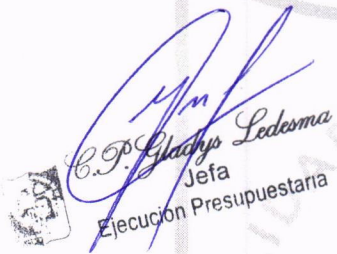 C.P. Gladys Ledesma
Jefa
Ejecución Presupuestaria